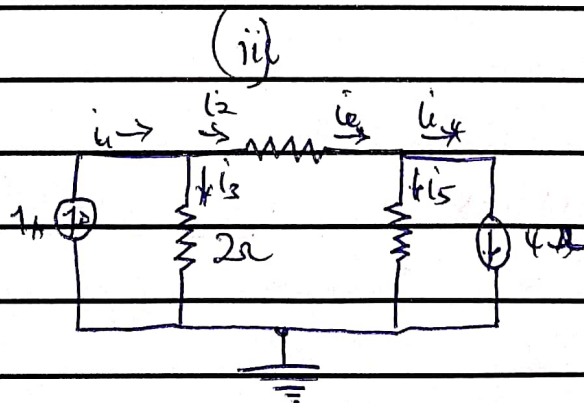 (ii)
i₁→ i₂→ i₄→
i₃ i₅
1A
2Ω